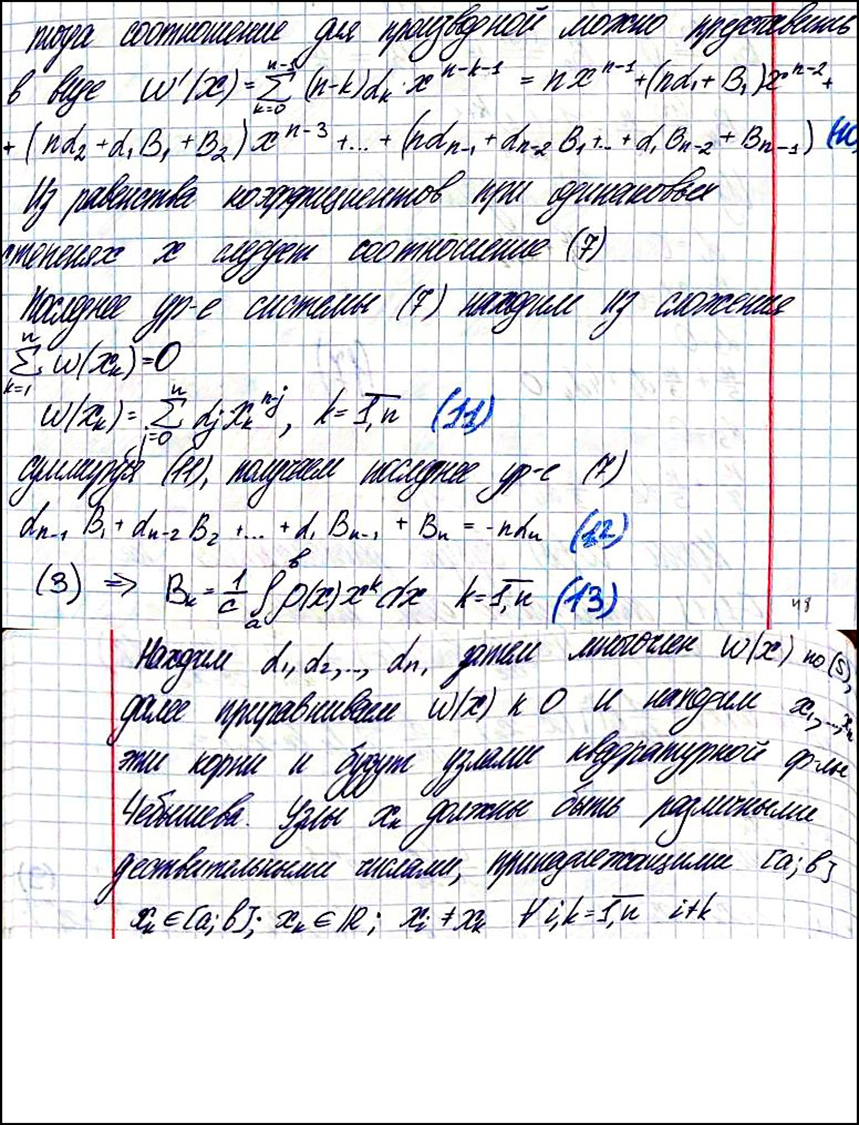 тогда соотношение для производной можно представить
в виде W'(x) = ∑_{k=0}^{n-1} (n-k)d_k · x^{n-k-1} = nx^{n-1} + (nd₁ + B₁)x^{n-2} +
+ (nd₂ + d₁B₁ + B₂)x^{n-3} + ... + (nd_{n-1} + d_{n-2}B₁ + .. + d₁B_{n-2} + B_{n-1}) (10)
Из равенства коэффициентов при одинаковых
степенях x следует соотношение (7)
Последнее ур-е системы (7) находим из сложения
∑_{k=1}^{n} W(x_k) = 0
W(x_k) = ∑_{j=0}^{n} d_j x_k^{n-j}, k = 1,n (11)
суммируя (11), получаем последнее ур-е (7)
d_{n-1}B₁ + d_{n-2}B₂ + ... + d₁B_{n-1} + B_n = -nd_n (12)
(3) => B_k = 1/c ∫_a^b ρ(x)x^k dx k = 1,n (13)
48
Находим d₁, d₂, .., d_n, затем многочлен W(x) по (5),
далее приравниваем W(x) к 0 и находим x₁, .., x_n
эти корни и будут узлами квадратурной ф-лы
Чебышева. Узлы x_k должны быть различными
действительными числами, принадлежащими [a; b]
x_k ∈ [a; b]; x_k ∈ ℝ; x_i ≠ x_k ∀ i,k = 1,n i≠k